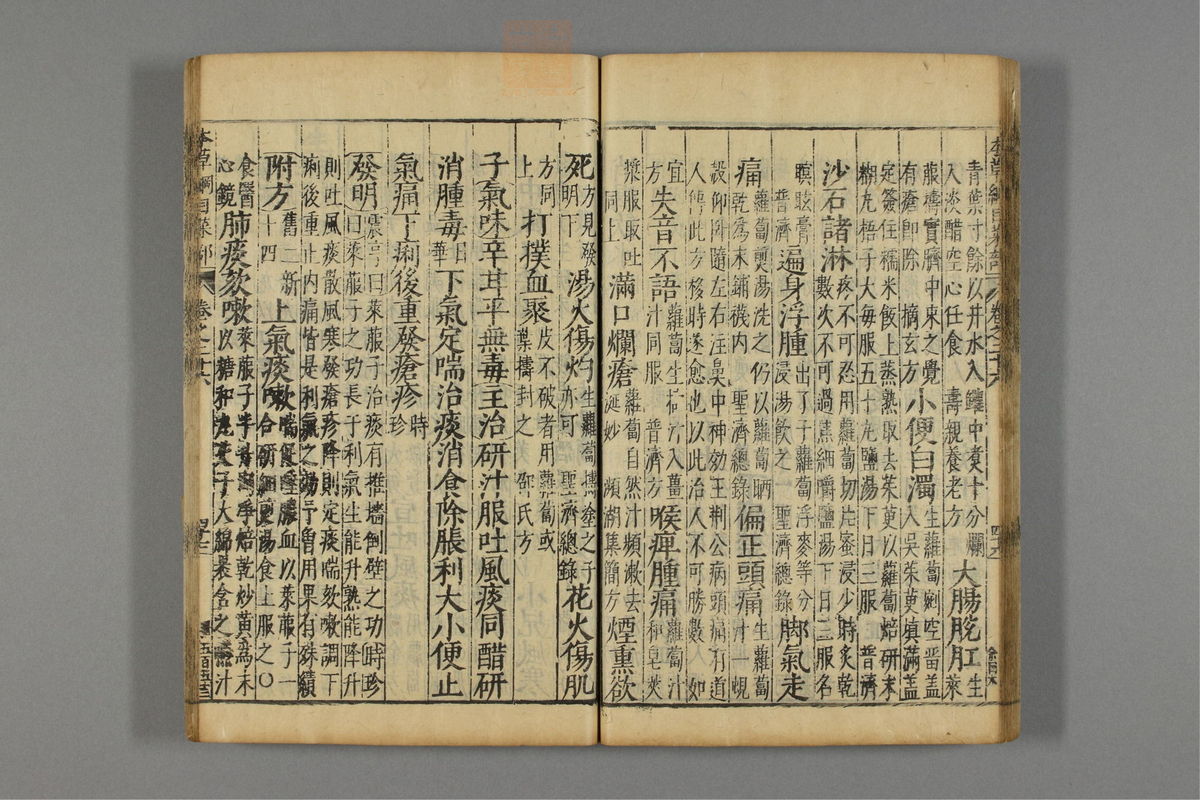 本草綱目菜部 卷之二十六
青葉寸餘以井水入鑵中煮十分爛入淡醋空心任食 壽親養老方 大腸脫肛 生萊
菔擣實臍中束之覺有瘡即除 摘玄方 小便白濁 生蘿蔔剜空留蓋入吳茱萸填滿蓋
定簽住糯米飯上蒸熟取去茱萸以蘿蔔焙研末糊丸梧子大每服五十丸鹽湯下日三服 普濟
沙石諸淋 疼不可忍用蘿蔔切片蜜浸少時炙乾數次不可過焦細嚼鹽湯下日三服名
瞑眩膏 普濟 遍身浮腫 出了子蘿蔔浮麥等分浸湯飲之 聖濟總錄 脚氣走
痛 蘿蔔煎湯洗之仍以蘿蔔晒乾爲末鋪襪内 聖濟總錄 偏正頭痛 生蘿蔔汁一蜆
殼仰卧隨左右注鼻中神効王荆公病頭痛有道人傳此方移時遂愈也以此治人不可勝數 如
宜方 失音不語 蘿蔔生搗汁入薑汁同服 普濟方 喉痺腫痛 蘿蔔汁和皂莢
漿服取吐同上 滿口爛瘡 蘿蔔自然汁頻漱去涎妙 瀕湖集簡方 煙熏欲
死 方見發明下 湯火傷灼 生蘿蔔擣塗之子亦可 聖濟總錄 花火傷肌
方同上 打撲血聚 皮不破者用蘿蔔或葉擣封之 邵氏方
子氣味辛甘平無毒主治研汁服吐風痰同醋研
消腫毒 日華 下氣定喘治痰消食除脹利大小便止
氣痛下痢後重發瘡疹 時珍
發明 震亨曰萊菔子治痰有推墻倒壁之功時珍曰萊菔子之功長于利氣生能升熟能降升
則吐風痰散風寒發瘡疹降則定痰喘欬嗽調下痢後重止内痛皆是利氣之功予曾用果有殊績
附方 舊二新十四 上氣痰嗽 喘促唾膿血以萊菔子一合研細煎湯食上服之〇
食醫心鏡 肺痰欬嗽 萊菔子半升淘淨焙乾炒黃爲末以糖和丸芡子大綿裹含之嚥汁
本草綱目菜部 卷之二十六